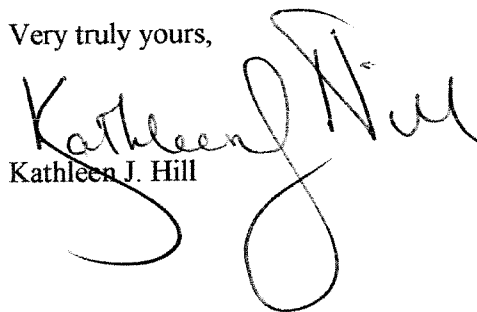 Very truly yours,
Kathleen J Hill
Kathleen J. Hill